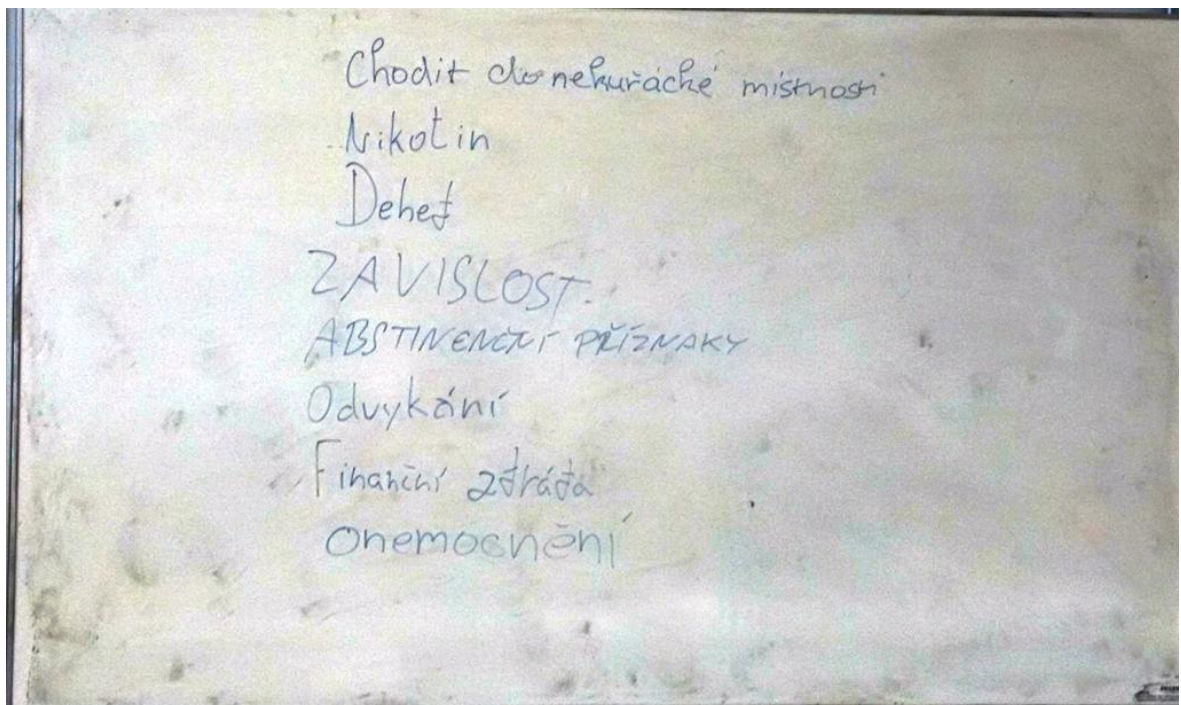 Chodit do nekuřácké místnosti
Nikotin
Dehet
ZAVISLOST.
ABSTINENČNÍ PŘÍZNAKY
Odvykání
Finanční ztráta
onemocnění